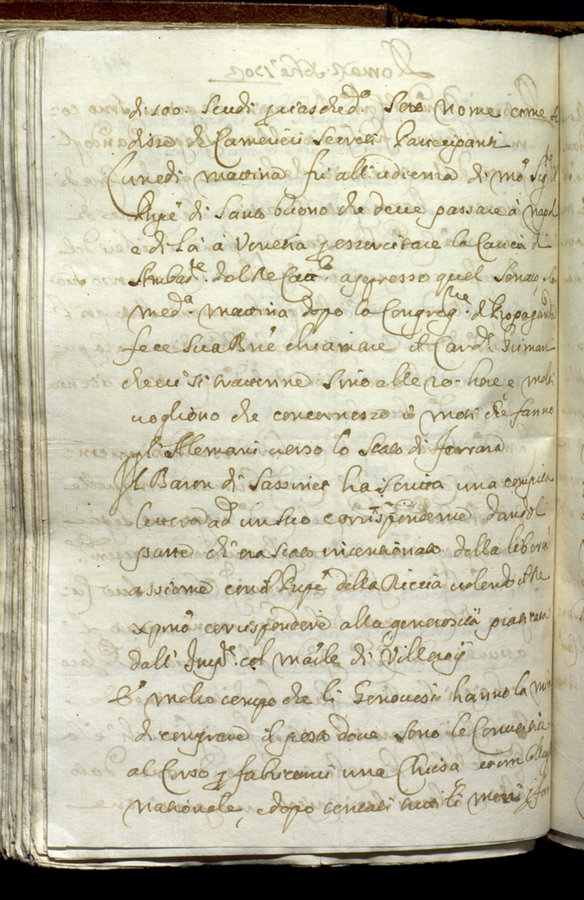 di 100. Scudi p ciasched.º Sotto nome come
disse di Camerieri Secreti Partecipanti
Lunedi mattina fu all'udienza di
Prñpe di Santo buono che deve passare à Napoli
e di là à Venetia p esercitare la Carica di
Ambas.re del Re Catt.co appresso quel Senato,
med.ª mattina dopo la Congreg.ne d Propaganda
fece Sua Bne chiamare il Card.l Grimani
che vi si trattenne sino alle 20. hore e molti
vogliono che concernesse i moti che fanno
gli Alemani verso lo Stato di Ferrara
Il Baron di Sassinet ha scritta una compita
lettera ad un suo corrispondente dandoli
parte ch'era stato intentionato della libertà
assieme con il Prñpe della Riccia volendo il Re
Xpmo corrispondere alla generosità praticata
dall' Imp.re col Marle di Villeroy
E' molto tempo che li Genovesi hanno la mira
di comprare il posto dove sono le Convertite
al Corso p fabricarvi una Chiesa con
nationale, e dopo tentati tutti li mezzi p